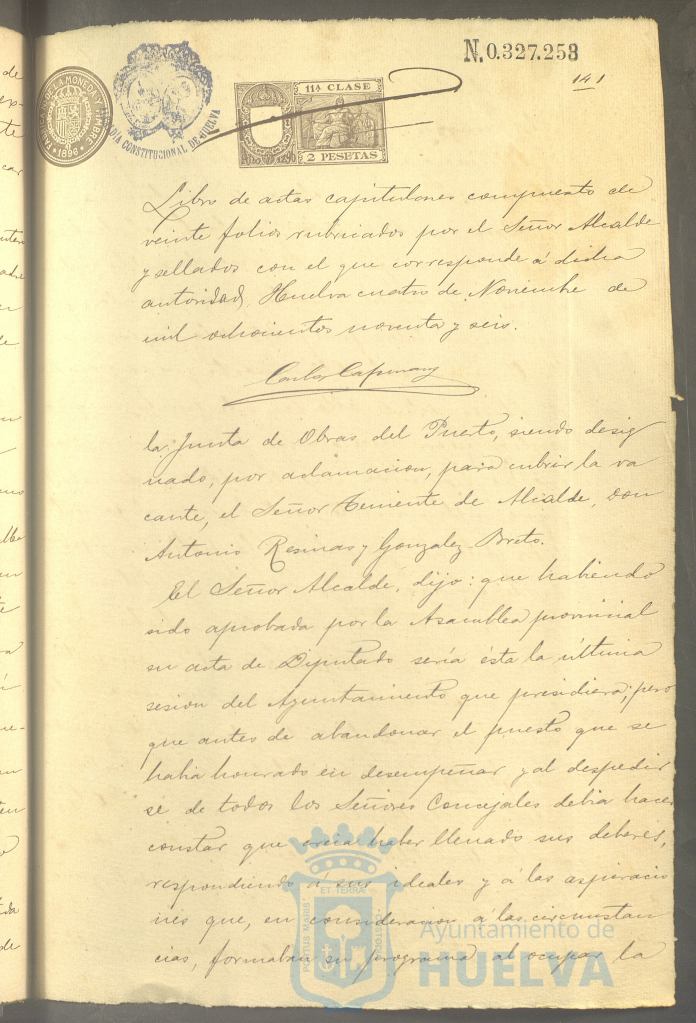 N. 0.327.253
141
11ª CLASE
2 PESETAS
FABRICA DE LA MONEDA Y TIMBRE
1896
CONSTITUCIONAL DE HUELVA
Libro de actas capitulares compuesto de
veinte folios rubricados por el Señor Alcalde
y sellados con el que corresponde á dicha
autoridad. Huelva cuatro de Noviembre de
mil ochocientos noventa y seis.
Carlos
la Junta de Obras del Puerto, siendo desig
nado, por aclamacion, para cubrir la va
cante, el Señor Teniente de Alcalde, don
Antonio Resinas y Gonzalez Breto.
El Señor Alcalde, dijo: que habiendo
sido aprobada por la Asamblea provincial
su acta de Diputado sería ésta la última
sesion del Ayuntamiento que presidiera; pero
que antes de abandonar el puesto que se
habia honrado en desempeñar y al despedir
se de todos los Señores Concejales debia hacer
constar que creia haber llenado sus deberes,
respondiendo á sus ideales y á las aspiracio
nes que, en consideracion á las circunstan
cias, formaban su programa al ocupar la
PORTUS MARIS ET TERRÆ CUSTODIA
Ayuntamiento de
HUELVA